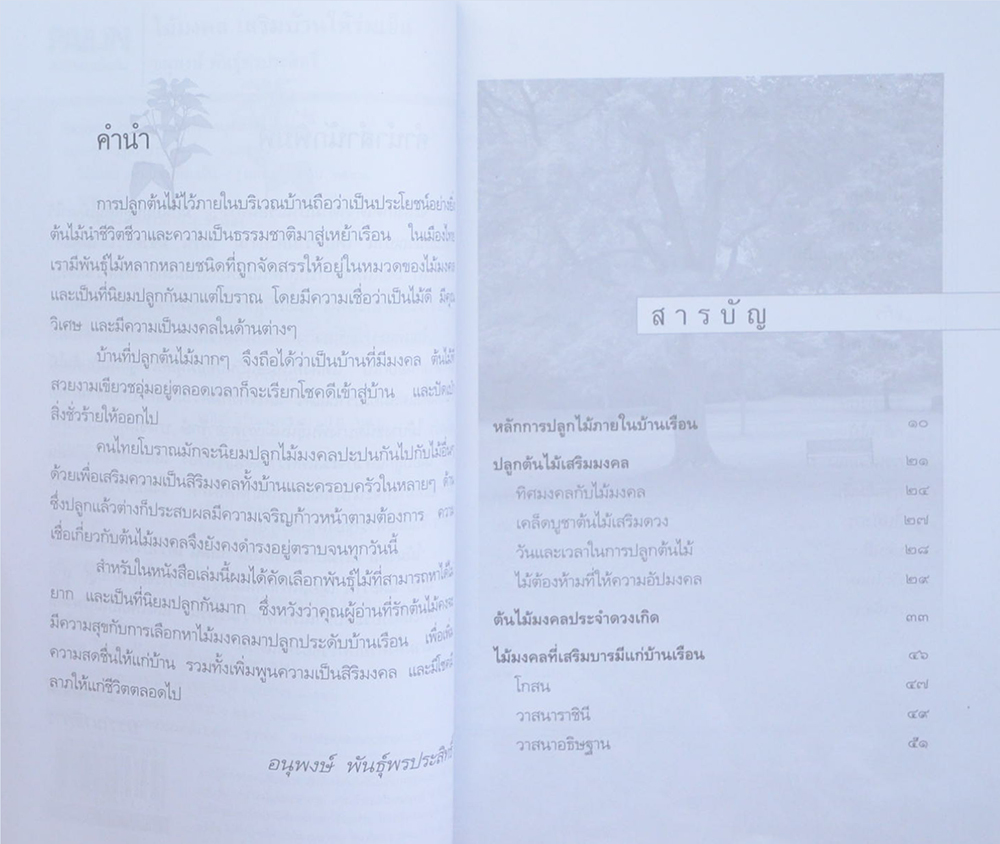 คำนำ
การปลูกต้นไม้ไว้ภายในบริเวณบ้านถือว่าเป็นประโยชน์อย่างยิ่ง
ต้นไม้นำชีวิตชีวาและความเป็นธรรมชาติมาสู่เหย้าเรือน ในเมืองไทย
เรามีพันธุ์ไม้หลากหลายชนิดที่ถูกจัดสรรให้อยู่ในหมวดของไม้มงคล
และเป็นที่นิยมปลูกกันมาแต่โบราณ โดยมีความเชื่อว่าเป็นไม้ดี มีคุณ
วิเศษ และมีความเป็นมงคลในด้านต่างๆ
บ้านที่ปลูกต้นไม้มากๆ จึงถือได้ว่าเป็นบ้านที่มีมงคล ต้นไม้
สวยงามเขียวชอุ่มอยู่ตลอดเวลาก็จะเรียกโชคดีเข้าสู่บ้าน
สิ่งชั่วร้ายให้ออกไป
คนไทยโบราณมักจะนิยมปลูกไม้มงคลปะปนกันไปกับไม้อื่นๆ
ด้วยเพื่อเสริมความเป็นสิริมงคลทั้งบ้านและครอบครัวในหลายๆ
ซึ่งปลูกแล้วต่างก็ประสบผลมีความเจริญก้าวหน้าตามต้องการ
เชื่อเกี่ยวกับต้นไม้มงคลจึงยังคงดำรงอยู่ตราบจนทุกวันนี้
สำหรับในหนังสือเล่มนี้ผมได้คัดเลือกพันธุ์ไม้ที่สามารถหาได้
ยาก และเป็นที่นิยมปลูกกันมาก ซึ่งหวังว่าคุณผู้อ่านที่รักต้นไม้
มีความสุขกับการเลือกหาไม้มงคลมาปลูกประดับบ้านเรือน
ความสดชื่นให้แก่บ้าน รวมทั้งเพิ่มพูนความเป็นสิริมงคล และมีโชค
ลาภให้แก่ชีวิตตลอดไป
อนุพงษ์ พันธุ์พรประสิทธิ์
สารบัญ
หลักการปลูกไม้ภายในบ้านเรือน ๑๐
ปลูกต้นไม้เสริมมงคล ๒๑
ทิศมงคลกับไม้มงคล ๒๔
เคล็ดบูชาต้นไม้เสริมดวง ๒๗
วันและเวลาในการปลูกต้นไม้ ๒๘
ไม้ต้องห้ามที่ให้ความอัปมงคล ๒๙
ต้นไม้มงคลประจำดวงเกิด ๓๓
ไม้มงคลที่เสริมบารมีแก่บ้านเรือน ๔๖
โกสน ๔๗
วาสนาราชินี ๔๙
วาสนาอธิษฐาน ๕๑